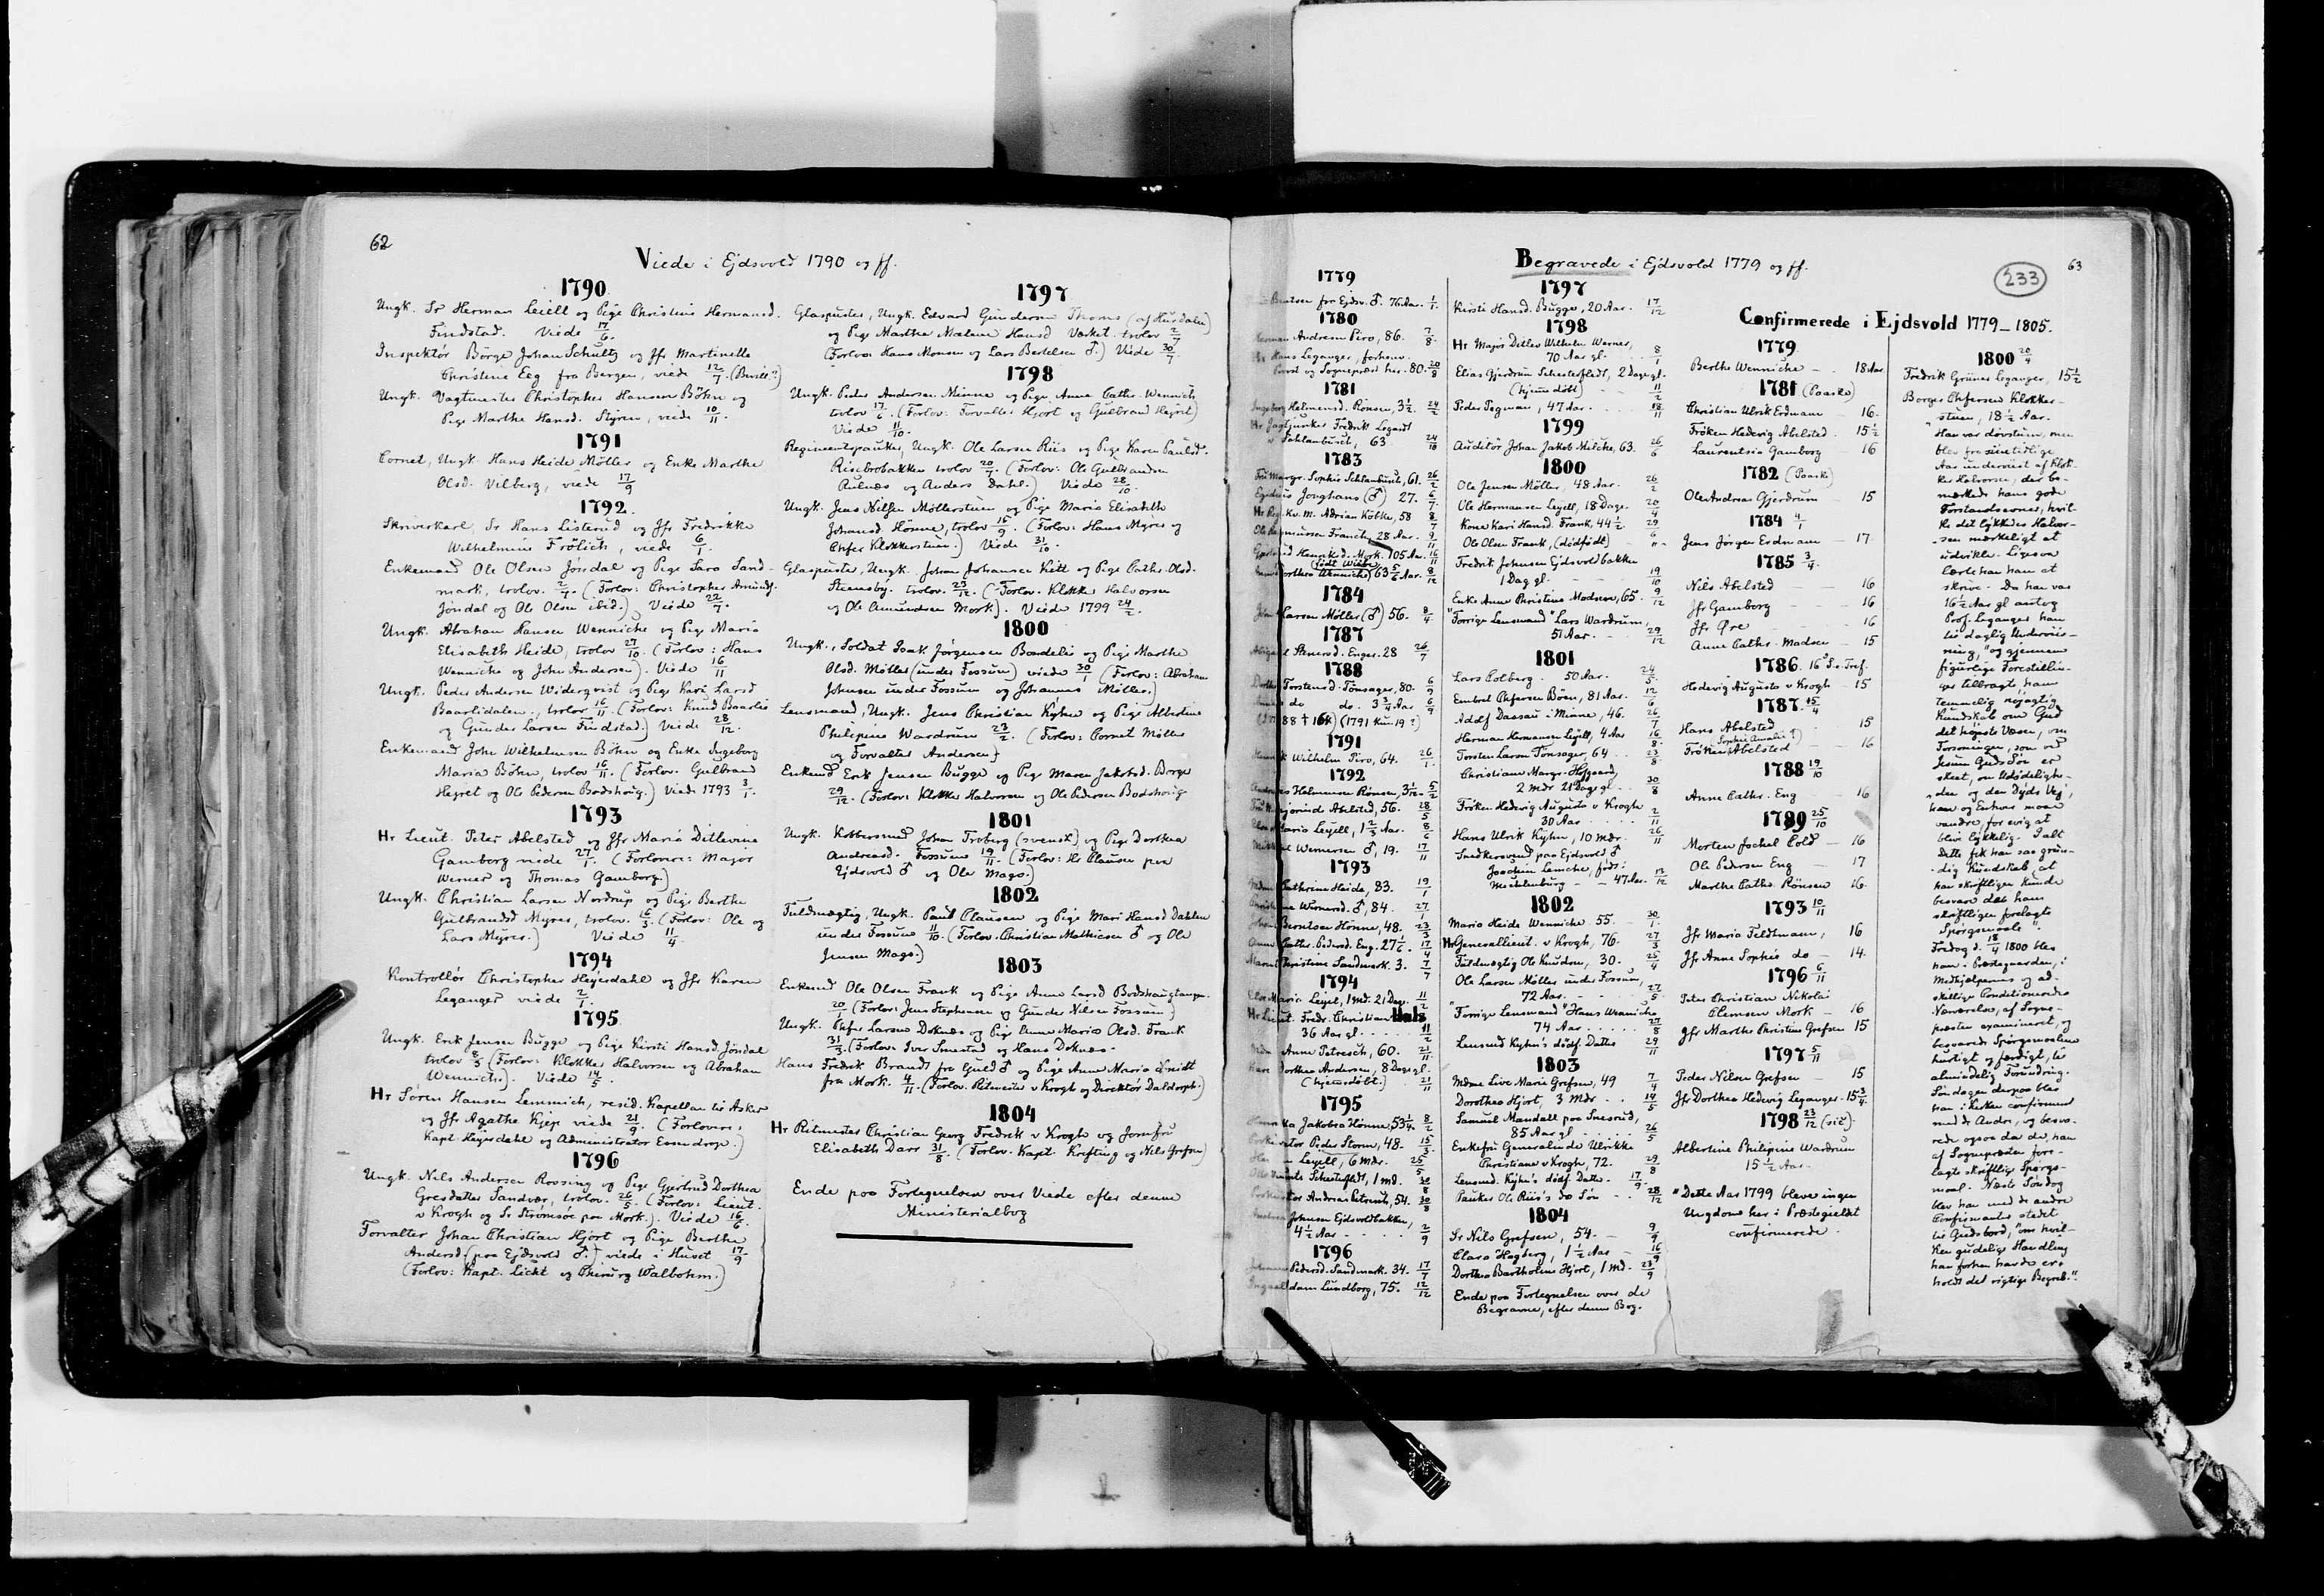 62
Viede i Ejdsvold 1790 og ff.
1790
Ungk. Sr Herman Leiell og Pige Christine Hermansd.
Findstad. Viede 17/6.
Inspektör Börge Johan Schultz og Jfr Martinette
Christine Eeg fra Bergen, viede 12/7. (Bevill.?)
Ungk. Vagtmester Christopher Hansen Böhn og
Pige Marthe Hansd. Styren, viede 10/11.
1791
Cornet, Ungk. Hans Heide Möller og Enke Marthe
Olsd. Vilberg, viede 17/9
1792.
Skriverkarl, Sr Hans Listerud og Jfr Fredrikke
Wilhelmine Frölich, viede 6/1.
Enkemand Ole Olsen Jöndal og Pige Sara Sand-
mark, trolov. 2/4. (Forlov: Christopher Amundsf.
Jöndal og Ole Olsen ibid.) Viede 22/7.
Ungk. Abraham Hansen Wenniche og Pige Maria
Elisabeth Heide, trolov 27/10. (Forlov: Hans
Wenniche og John Andersen). Viede 16/11
Ungk. Peder Andersen Widerqvist og Pige Kari Larsd
Baarlidalen., trolov 16/11. (Forlov: Knud Baarlie
og Gunder Larsen Findstad.) Viede 28/12.
Enkemand John Wilhelmsen Böhn og Enke Ingeborg
Maria Böhn, trolov 16/11. (Forlov. Gulbrand
Hegret og Ole Pedersen Bodshoug.) Viede 1793 3/1.
1793
Hr Lieut. Peter Abelsted og Jfr Maria Ditlevine
Gamborg viede 27/1. (Forlovere: Major
Werner og Thomas Gamborg.)
Ungk. Christian Larsen Nordrup og Pige Berthe
Gulbrandsd Myrer, trolov. 16/3. (Forlov: Ole og
Lars Myrer.) Viede 11/4.
1794
Kontrollör Christopher Heyerdahl og Jfr Karen
Leganger viede 2/1.
1795
Ungk. Erik Jensen Bugge og Pige Kirsti Hansd. Jöndal
trolov 8/3 (Forlov: Klokker Halvorsen og Abraham
Wenniche). Viede 14/5.
Hr Sören Hansen Lemmich, resid. Kapellan til Asker
og Jfr Agathe Kjep viede 21/9. (Forlovere:
Kapt. Heyerdahl og Administrator Esmedrop.)
1796
Ungk. Nils Andersen Roosing og Pige Gjertrud Dorthea
Gresdatter Sandvær, trolov. 26/5 (Forlov: Lieut.
v Krogh og Sr Strömsöe paa Mork.). Viede 16/6.
Forvalter Johan Christian Hjort og Pige Berthe
Andersd. (paa Ejdsvold ♂.) viede i Huset 17/9
(Forlov: Kapt. Licht og Chirurg Walbohm.)
1797
Glaspuster, Ungk. Edvard Gundersen Thoms (af Husdalen)
og Pige Marthe Malene Hansd Varket trolov 2/7
(Forlov: Hans Monsen og Lars Bertelsen ♂.) Viede 30/7.
1798
Ungk. Peder Andersen Minne og Pige Anne Cathr. Wennich
trolov 17/6. (Forlov: Forvalter Hjort og Gulbrand Hegret)
Viede 11/10.
Regimentspauker, Ungk. Ole Larsen Riis og Pige Karen Paulsd.
Risebrobakken trolov 20/7. (Forlov: Ole Gulbrandsen
Rulnæs og Anders Dahl.) Viede 28/10.
Ungk. Jens Nilsen Möllerstuen og Pige Maria Elisabeth
Johansd. Hönne, trolov 16/9. (Forlov: Hans Myrer og
Chfer Klokkerstuen.) Viede 31/10.
Glaspuster, Ungk. Johan Johansen Kett og Pige Cathr. Olsd.
Steensby. trolov. 23/12. (Forlov. Klokker Halvorsen
og Ole Amundsen Mork). Viede 1799 24/2.
1800
Ungk., Soldat Isak Jörgensen Bardelie og Pige Marthe
Olsd. Möller (under Fossum) viede 30/1 (Forlov: Abraham
Johnsen under Fossum og Johannes Möller.)
Lensmand, Ungk. Jens Christian Kyhn og Pige Albertine
Philipine Wardrum 23/2. (Forlov: Cornet Möller
og Forvalter Andersen)
Enkemd Erik Jensen Bugge og Pige Maren Jakobsd. Borge
29/12. (Forlov: Klokker Halvorsen og Ole Pedersen Bodshoug
1801
Ungk. Kobbersmed Johan Troberg (svensk) og Pige Dorthea
Andreasd. Fossum 19/11. (Forlov: Hr Clausen paa
Ejdsvold ♂ og Ole Mago.)
1802
Fuldmægtig, Ungk. Paul Clausen og Pige Mari Hansd Dahlen
under Fossum 11/10. (Forlov. Christian Mathiesen ♂ og Ole
Jensen Mago.)
1803
Enkemd Ole Olsen Frank og Pige Anne Larsd Bodshaugtangen
20/1 (Forlov: Jens Stephensen og Gunder Nilsen Fossum)
Ungk. Chfer Larsen Doknæs og Pige Anne Maria Olsd. Frank
31/3. (Forlov: Iver Smestad og Hans Doknæs.
Hans Fredrik Brandt fra Guld ♂ og Pige Anne Maria Qvidt
fra Mork. 4/11. (Forlov. Ritmester v Krogh og Direktör Daldorph.)
1804
Hr Ritmester Christian Georg Fredrik v Krogh og Jomfru
Elisabeth Darr 31/8. (Forlov. Kapt. Krefting og Nils Grefsen)
Ende paa Fortegnelsen over Viede efter denne
Ministerialbog
63
233
Begravede i Ejdsvold 1779 og ff.
1779
Berntsen fra Ejdsv. ♂. 76 Aar. 1/1.
1780
Andresen Piro, 86. 7/8.
Hans Leganger, forhenv.
Provst og Sognepræst her. 80. 20/8
1781
Ingeborg Helmersd. Rönsen, 3 1/2. 24/2
Hr Jagtjunker Fredrik Legardt
v Schlanbusch, 63 24/10
1783
Margr. Sophie Schlanbusch, 61. 26/2
Egidius Jonghans (♂) 27. 6/7.
Hr Reg. Kv. M. Adrian Köbke, 58 8/7
Ole Rasmussen Franche, 28 Aar. 9/11
Henriksd. Mork. 105 Aar. 16/11
(född Wilberg)
Dorthea Wenniche 63 5/6 Aar. 8/12
1784
Larsen Möller (♂) 56. 8/4
1787
Stensrsd. Enger. 28 26/7
1788
Torstensd. Tönsager, 80. 6/9
do do. 3 3/4 Aar 6/9
(1788 † 164) (1791 kun 19?)
1791
Wilhelm Piro, 64. 26/1.
1792
Helmersen Rönsen, 3 1/2. 5/2
Abelsted, 56. 28/5
Maria Leyell, 1 2/3 Aar. 8/6
Wernersen ♂, 19. 17/11
1793
Cathrine Heide, 83. 19/1
Wernersd. ♂, 84. 27/1
Berntsen Hönne, 48. 23/3
Cathr. Pedersd. Eng. 27 1/6. 17/4
Christine Sandmark. 3. 7/7
1794
Maria Leyel, 1 Md. 21 Dage. 11/2
Hr Lieut. Fredr. Christian Hals
36 Aar gl. 11/2
Anne Petresch, 60. 21/11
Dorthea Andersen, 8 Dage gl.
(hjemmedöbt.) 21/11
1795
Jakobea Hönne, 53 1/4. 8/2
Peder Storm, 48. 15/3.
Leyell, 6 Mdr. 25/5
Schesterfledt, 1 Md. 30/8
Andreas Petersch, 54. 30/8
Johnsen Ejdsvoldbakken,
4 1/2 Aar 2/9
1796
Pedersd. Sandmark. 34. 17/7
Lundborg, 75. 12/12
1797
Kirsti Hansd. Bugge, 20 Aar. 17/12
1798
Hr Major Detlev Wilhelm Werner,
70 Aar gl. 8/1
Elias Gjerdrum Schesterfledt, 2 Dage gl.
(hjemmedöbt) 11/2
Peder Tegman, 47 Aar. 18/11
1799
Auditör Johan Jakob Milche, 63. 26/6
1800
Ole Jensen Möller, 48 Aar. 26/2
Ole Hermansen Leyell, 18 Dage. 20/4
Kone Kari Hansd. Frank, 44 1/2 29/6
Ole Olsen Frank, (dödfödt) - "-
Fredrik Johnsen Ejdsvoldbakken
1 Dag gl. 19/10
Enke Anne Christine Madsen, 65. 9/12
"Forrige Lensmand" Lars Wardrum,
51 Aar. 29/12
1801
Lars Colberg. 50 Aar. 24/5
Embret Chfersen Böen, 81 Aar. 12/6
Adolf Dassau i Minne, 46. 26/7
Herman Hermansen Leyell, 4 Aar 16/8.
Torsten Larsen Tönsager, 64. 23/8
Christiane Margr. Hofgaard,
2 Mdr 21 Dage gl. 30/8
Fröken Hedevig Augusta v Krogh
30 Aar 2/11
Hans Ulrik Kyhn, 10 Mdr. 26/11
Snedkersvend paa Ejdsvold ♂
Joachim Lemche, föds:
Mecklenburg - 47 Aar. 13/12
1802
Maria Heide Wenniche 55. 30/1.
Hr Generallieut. v Krogh, 76. 27/3
Fuldmægtig Ole Knudsen, 30. 25/4
Ole Larsen Möller under Fossum,
72 Aar. 27/5
"Forrige Lensmand" Hans Wenniche
74 Aar 27/8
Lensmd Kyhn's dödf. Datter 29/11
1803
Mdme Live Marie Grefsen, 49 7/4
Dorothea Hjort, 3 Mdr 14/5
Samuel Mandall paa Snesrud,
85 Aar gl 26/5
Enkefru Generalinde Ulrikke
Christiane v Krogh, 72. 29/8
Lensmd. Kyhn's dödf. Datter. 17/9
Pauker Ole Riis's do Sön 28/12
1804
Sr Nils Grefsen, 54. 9/9
Clara Hagberg, 1 1/2 Aar 16/9
Dorthea Bartholine Hjort, 1 Md. 23/9
Ende paa Fortegnelsen over de
Begravne, efter denne Bog.
Confirmerede i Ejdsvold 1779-1805.
1779
Berthe Wenniche - 18 Aar
1781 (Paaske)
Christian Ulrik Erdmann 16.
Fröken Hedevig Abelsted. 15 1/2
Laurentsia Gamborg - 16
1782 (Paask)
Ole Andreas Gjerdrum - 15
1784 4/1
Jens Jörgen Erdmann - 17
1785 3/4
Nils Abelsted - 16
Jfr Gamborg - 16
Jfr Öre - 16
Anne Cathr. Madsen - 15
1786. 16 S. e. Tref.
Hedevig Augusta v Krogh - 15
1787 15/4
Hans Abelsted 15
(Sophie Amalie?)
Fröken Abelsted - 16
1788 19/10
Anne Cathr. Eng - 16
1789 25/10
Morten Jochel Cold - 16
Ole Pedersen Eng - 17
Marthe Cathr. Rönsen 16.
1793 10/11
Jfr Maria Feldtmann, 16
Jfr Anne Sophie do - 14.
1796 6/11
Peter Christian Nikolai
Clemsen Mork - 16
Jfr Marthe Christine Grefsen 15
1797 5/11
Peder Nilsen Grefsen - 15
Jfr Dorthea Hedevig Leganger - 15 3/4.
1798 23/12 (sic).
Albertine Philipine Wardrum
15 1/2 Aar.
"Dette Aar 1799 bleve ingen
Ungdom her i Præstegieldet
confirmerede.
1800 20/4
Fredrik Grüner Leganger, 15 1/2
Borger Chfersen Klokker-
stuen, 18 1/2 Aar.
"Han var dövstum, men
blev fra sine tidlige
Aar underviist af Klok-
ker Halvorsen, der be-
mærkede hans gode
Forstandsevner, hvil-
ke det lykkedes Halvor-
sen mærkeligt at
udvikle. Ligesaa
lærte han ham at
skrive. Da han var
16 1/2 Aar gl antog
Prof. Leganger ham
til daglig Underviis-
ning, "og gjennem
figurlige Forestillin-
ger tilbragte ham
temmelig nöjagtig
Kundskab om Gud
det höjeste Væsen, om
Forsoningen, som ved
Jesum Guds Sön er
skeet, om Udödelighe-
den og den Dyds Vej,
han og Enhver maae
vandre, for evig at
blive lykkelig. I alt
Dette fik han saa grun-
dig Kundskab, at
han skriftligen kunde
besvare det ham
skriftligen forelagte
Spörgsmaale".
Fredag d. 18/4 1800 blev
han i Præstegaarden, i
Medhjælpernes og ad-
skillige Conditioneredes
Nærværelse, af Sogne-
præsten examineret, og
besvarede Spörgsmaalene
hurtigt og færdigt, til
almindelig Forundring.
Söndagen derpaa blev
han i Kirken confirmeret
med de Andre, og besva-
rede ogsaa da de, ham
af Sognepræsten fore-
lagte skriftlige Spörgs-
maal. Næste Söndag
blev han med de andre
Confirmanter stedet
til Guds bord, "om hvil-
ken gudelige Handling
han forhen havde er-
holdt det rigtige Begreb."